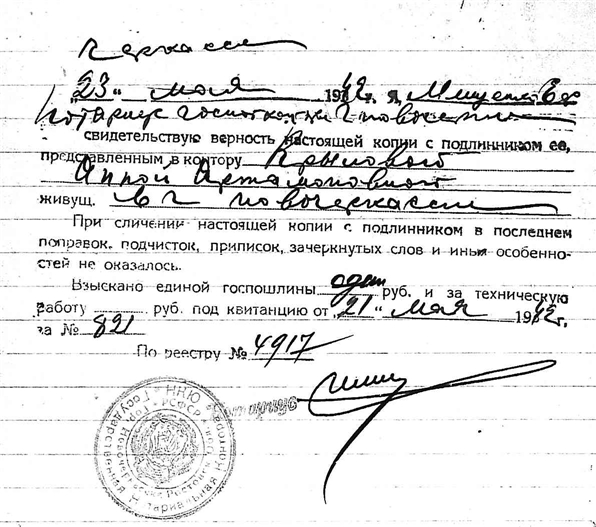 черкассы
"23" мая 1942 г. я, Мищенко
нотариус госноtконторы г Новочеркасс
свидетельствую верность настоящей копии с подлинником ее,
представленным в контору Крыловой
Анной Артамоновной
живущ. в г Новочеркасске
При сличении настоящей копии с подлинником в последнем
поправок, подчисток, приписок, зачеркнутых слов и иных особенно-
стей не оказалось.
Взыскано единой госпошлины один руб. и за техническую
работу руб. под квитанцию от "21" мая 1942 г.
за № 821
По реестру № 4917
Нотариус
Государственная Нотариальная Контора